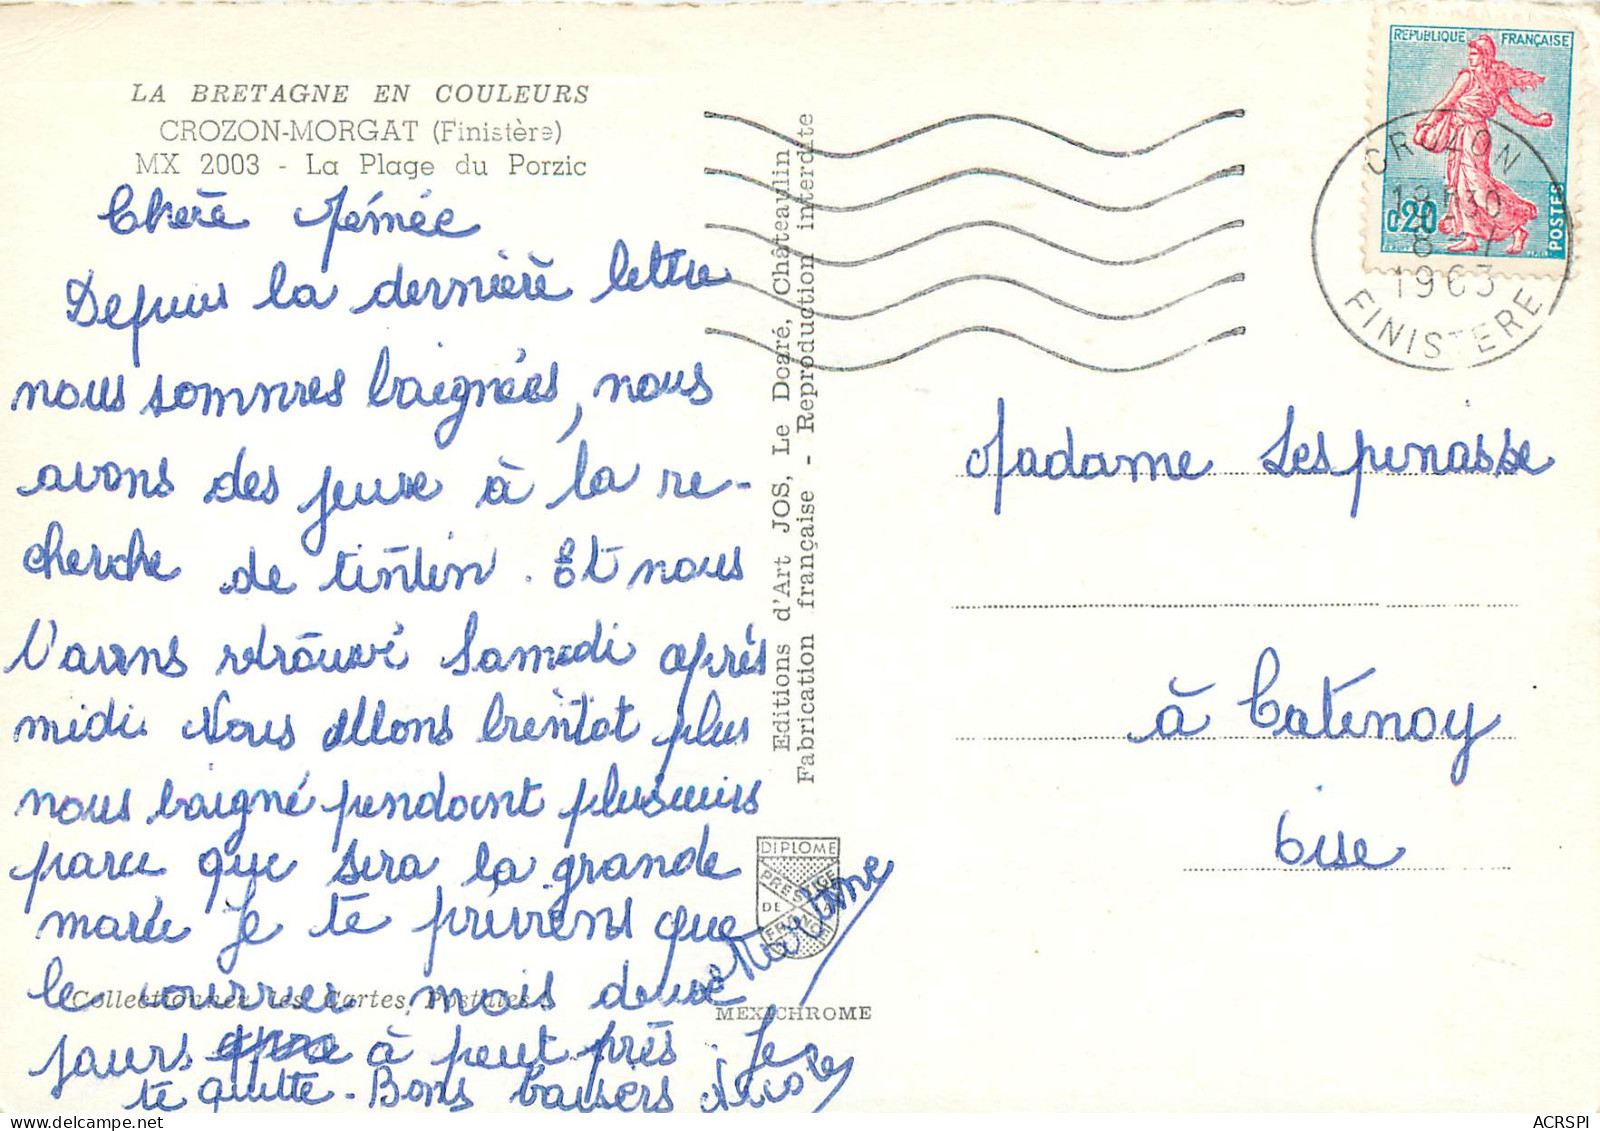 LA BRETAGNE EN COULEURS
CROZON-MORGAT (Finistère)
MX 2003 - La Plage du Porzic
Chère Mémée
Depuis la dernière lettre
nous sommes baignées, nous
avons des jeux à la re-
cherche de tintin. Et nous
l'avons retrouvé Samedi après
midi. Nous allons bientot plus
nous baigné pendant plusieurs
parce que sera la grande
marée Je te préviens que
le courrier mais deux
jours à peut près. Je
te quitte - Bons baisers Nicole
Martine
Collectionnez les Cartes Postales
Editions d'Art JOS, Le Doaré, Châteaulin
Fabrication française - Reproduction interdite
DIPLOME
PRESTIGE
DE LA
FRANCE
MEXICHROME
REPUBLIQUE FRANÇAISE
0,20
POSTES
CROZON
18H30
8-7
1963
FINISTERE
Madame Lespinasse
à Catenoy
Oise
ACRSPI